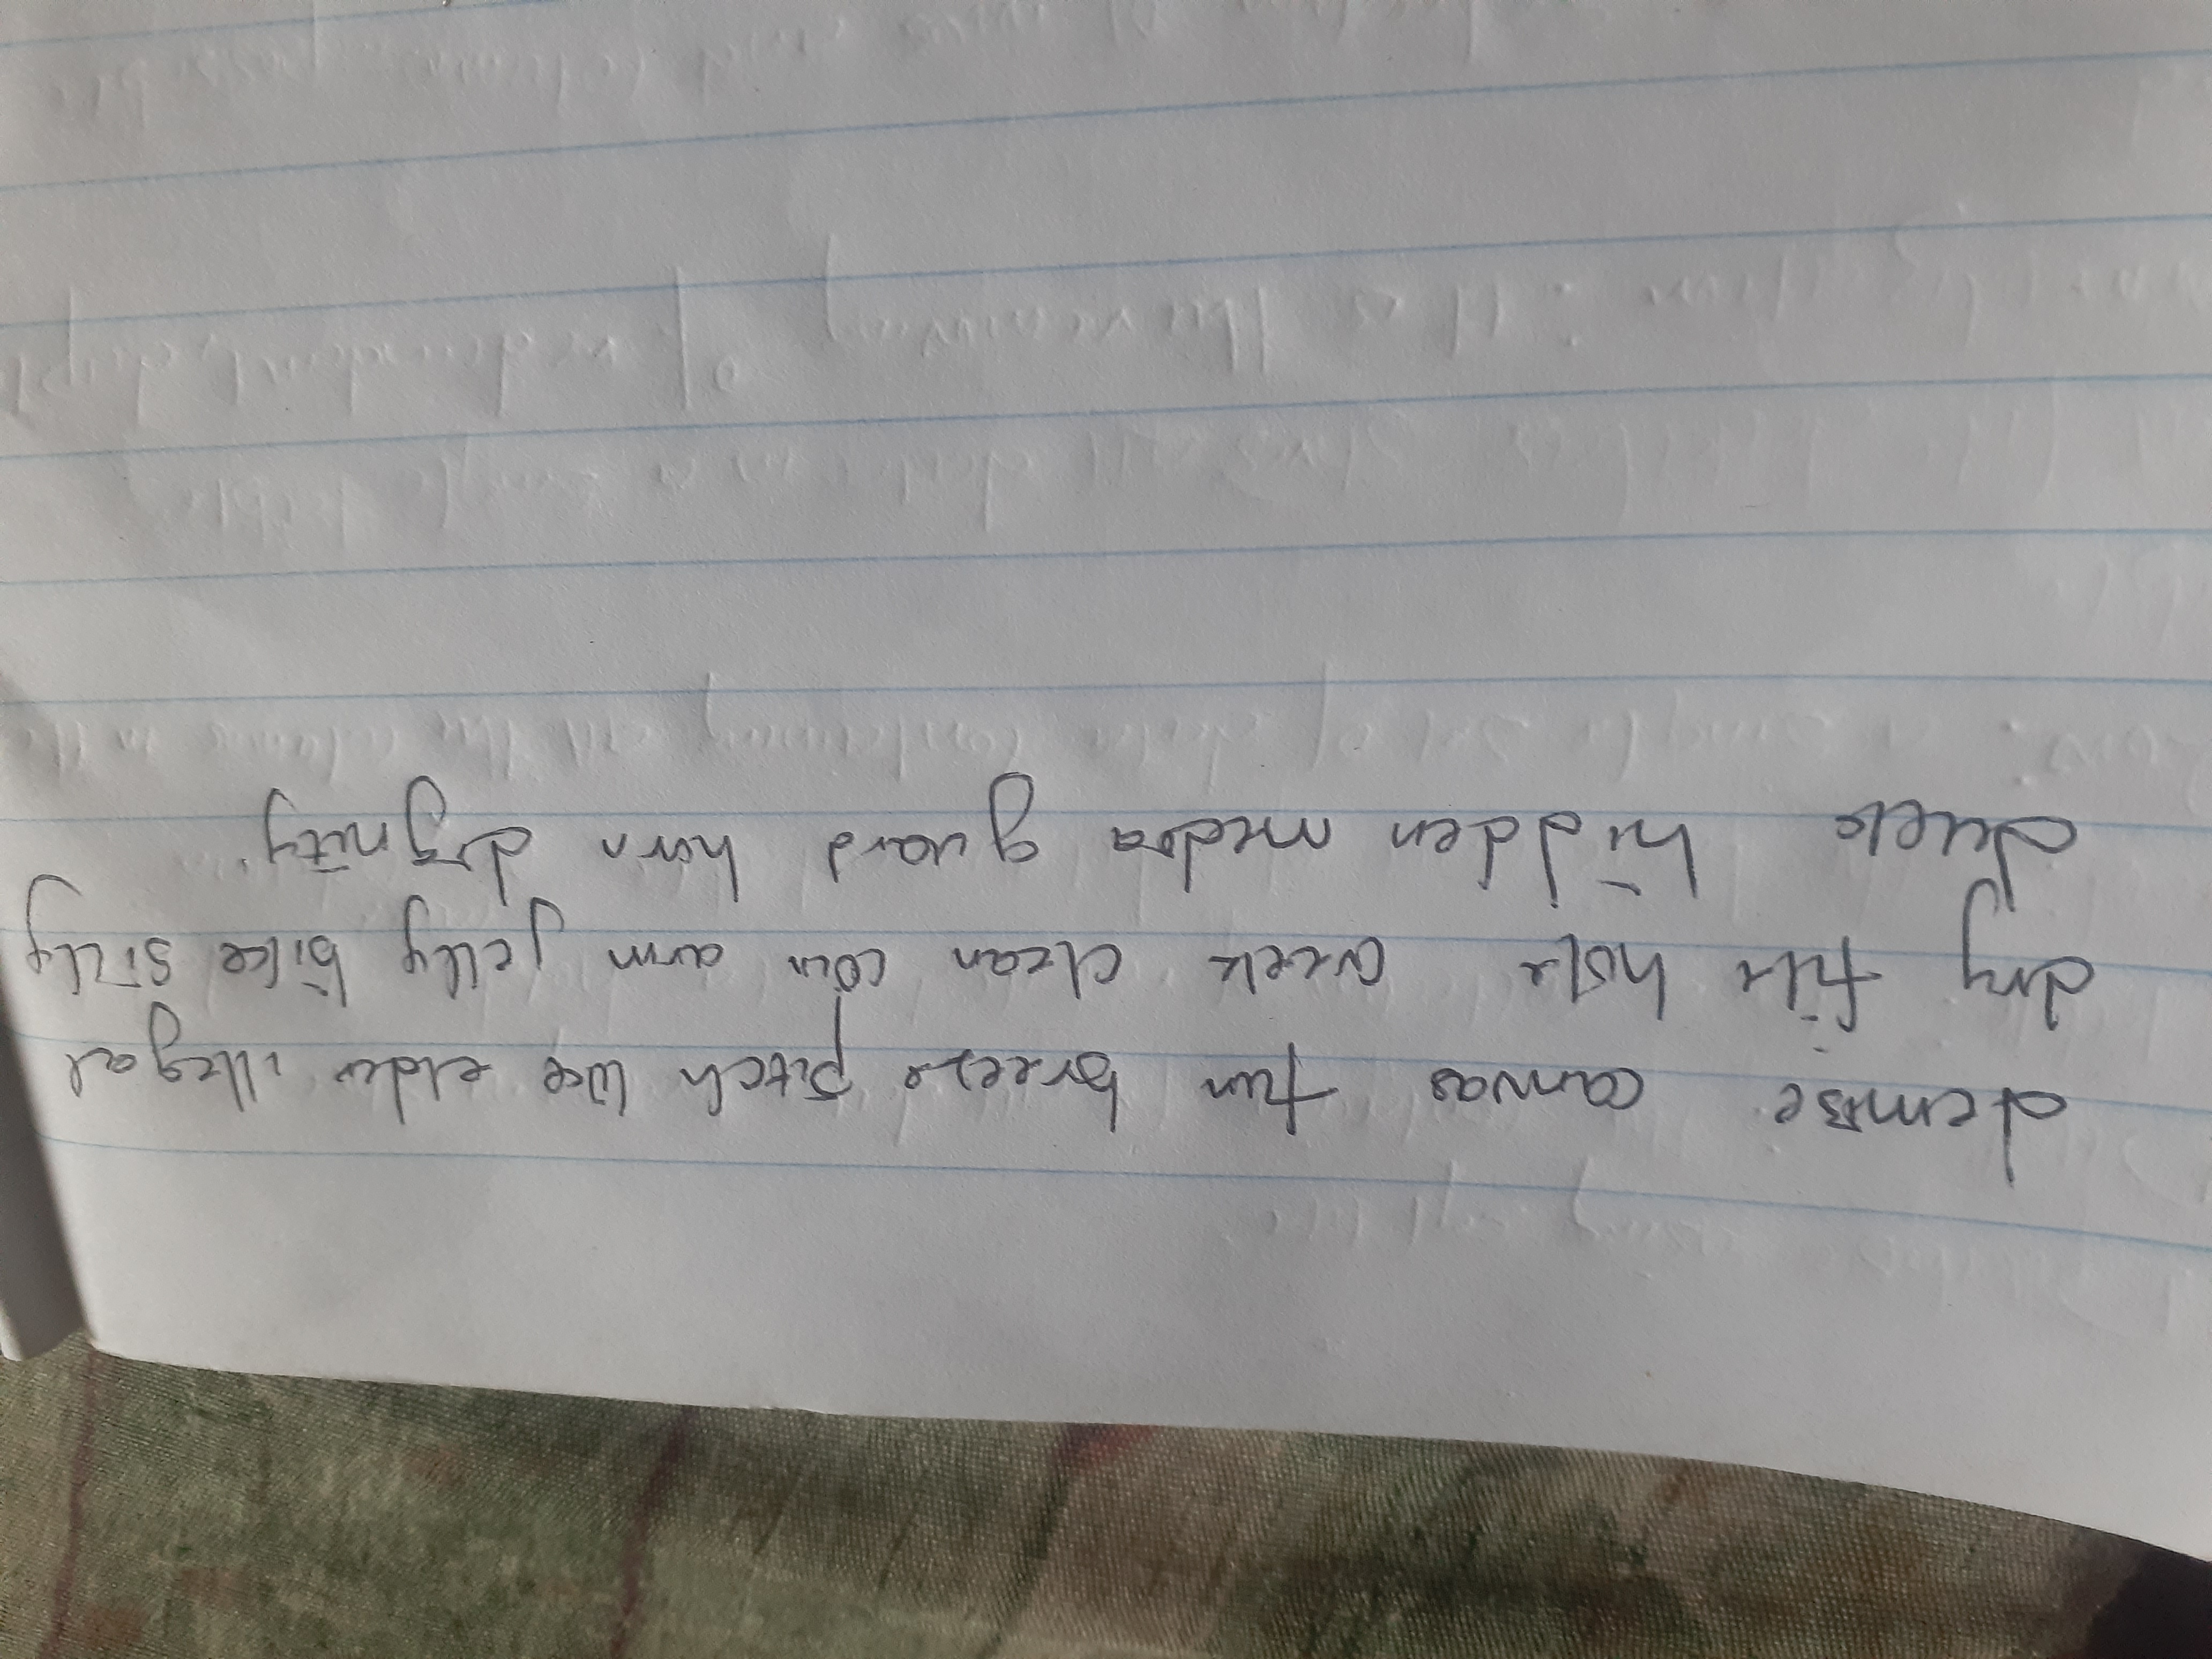 demise canvas fun breeze pitch like elder illegal
dry clean coin arm jelly bike silly
hidden media guard horn dignity